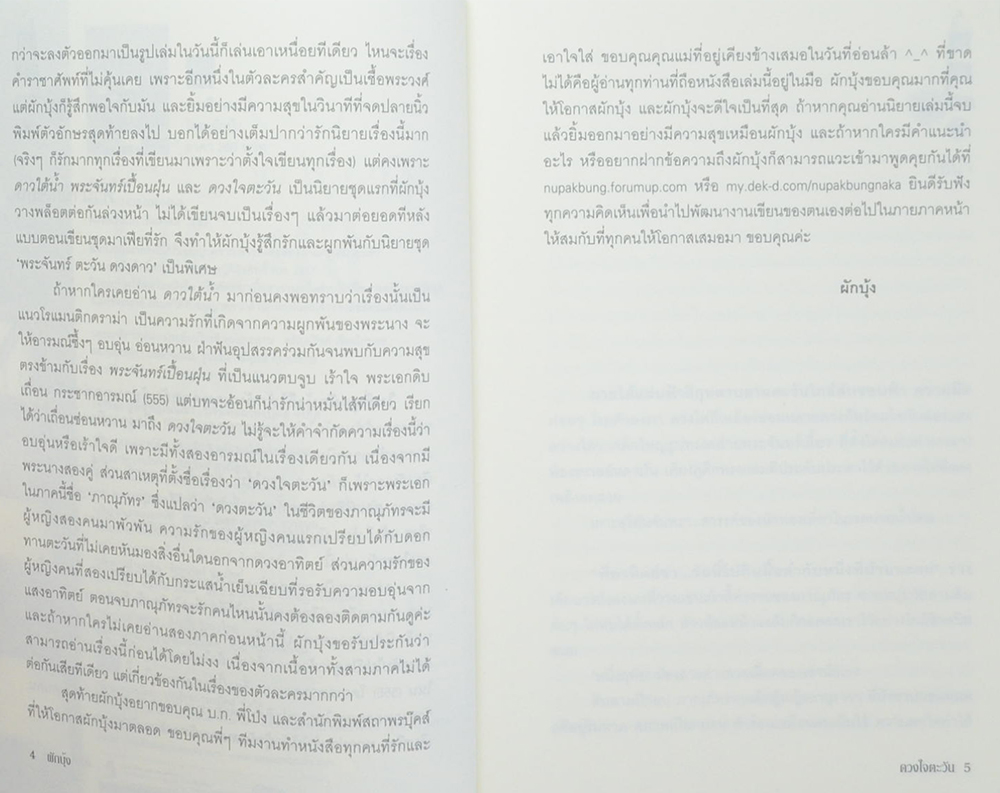 กว่าจะลงตัวออกมาเป็นรูปเล่มในวันนี้ก็เล่นเอาเหนื่อยทีเดียว ไหนจะเรื่อง
คำราชาศัพท์ที่ไม่คุ้นเคย เพราะอีกหนึ่งในตัวละครสำคัญเป็นเชื้อพระวงศ์
แต่ผักบุ้งก็รู้สึกพอใจกับมัน และยิ้มอย่างมีความสุขในวินาทีที่จดปลายนิ้ว
พิมพ์ตัวอักษรสุดท้ายลงไป บอกได้อย่างเต็มปากว่ารักนิยายเรื่องนี้มาก
(จริงๆ ก็รักมากทุกเรื่องที่เขียนมาเพราะว่าตั้งใจเขียนทุกเรื่อง) แต่คงเพราะ
ดาวใต้น้ำ พระจันทร์เปื้อนฝุ่น และ ดวงใจตะวัน เป็นนิยายชุดแรกที่ผักบุ้ง
วางพล็อตต่อกันล่วงหน้า ไม่ได้เขียนจบเป็นเรื่องๆ แล้วมาต่อยอดทีหลัง
แบบตอนเขียนชุดมาเฟียที่รัก จึงทำให้ผักบุ้งรู้สึกรักและผูกพันกับนิยายชุด
‘พระจันทร์ ตะวัน ดวงดาว’ เป็นพิเศษ
ถ้าหากใครเคยอ่าน ดาวใต้น้ำ มาก่อนคงพอทราบว่าเรื่องนั้นเป็น
แนวโรแมนติกดราม่า เป็นความรักที่เกิดจากความผูกพันของพระนาง จะ
ให้อารมณ์ซึ้งๆ อบอุ่น อ่อนหวาน ฝ่าฟันอุปสรรคร่วมกันจนพบกับความสุข
ตรงข้ามกับเรื่อง พระจันทร์เปื้อนฝุ่น ที่เป็นแนวตบจูบ เร้าใจ พระเอกดิบ
เถื่อน กระชากอารมณ์ (555) แต่บทจะอ้อนก็น่ารักน่าหมั่นไส้ทีเดียว เรียก
ได้ว่าเถื่อนซ่อนหวาน มาถึง ดวงใจตะวัน ไม่รู้จะให้คำจำกัดความเรื่องนี้ว่า
อบอุ่นหรือเร้าใจดี เพราะมีทั้งสองอารมณ์ในเรื่องเดียวกัน เนื่องจากมี
พระนางสองคู่ ส่วนสาเหตุที่ตั้งชื่อเรื่องว่า ‘ดวงใจตะวัน’ ก็เพราะพระเอก
ในภาคนี้ชื่อ ‘ภาณุภัทร’ ซึ่งแปลว่า ‘ดวงตะวัน’ ในชีวิตของภาณุภัทรจะมี
ผู้หญิงสองคนมาพัวพัน ความรักของผู้หญิงคนแรกเปรียบได้กับดอก
ทานตะวันที่ไม่เคยหันมองสิ่งอื่นใดนอกจากดวงอาทิตย์ ส่วนความรักของ
ผู้หญิงคนที่สองเปรียบได้กับกระแสน้ำเย็นเฉียบที่รอรับความอบอุ่นจาก
แสงอาทิตย์ ตอนจบภาณุภัทรจะรักคนไหนนั้นคงต้องลองติดตามกันดูค่ะ
และถ้าหากใครไม่เคยอ่านสองภาคก่อนหน้านี้ ผักบุ้งขอรับประกันว่า
สามารถอ่านเรื่องนี้ก่อนได้โดยไม่งง เนื่องจากเนื้อหาทั้งสามภาคไม่ได้
ต่อกันเสียทีเดียว แต่เกี่ยวข้องกันในเรื่องของตัวละครมากกว่า
สุดท้ายผักบุ้งอยากขอบคุณ บ.ก. พี่โป่ง และสำนักพิมพ์สถาพรบุ๊คส์
ที่ให้โอกาสผักบุ้งมาตลอด ขอบคุณพี่ๆ ทีมงานทำหนังสือทุกคนที่รักและ
4 ผักบุ้ง
เอาใจใส่ ขอบคุณคุณแม่ที่อยู่เคียงข้างเสมอในวันที่อ่อนล้า ^_^ ที่ขาด
ไม่ได้คือผู้อ่านทุกท่านที่ถือหนังสือเล่มนี้อยู่ในมือ ผักบุ้งขอบคุณมากที่คุณ
ให้โอกาสผักบุ้ง และผักบุ้งจะดีใจเป็นที่สุด ถ้าหากคุณอ่านนิยายเล่มนี้จบ
แล้วยิ้มออกมาอย่างมีความสุขเหมือนผักบุ้ง และถ้าหากใครมีคำแนะนำ
อะไร หรืออยากฝากข้อความถึงผักบุ้งก็สามารถแวะเข้ามาพูดคุยกันได้ที่
nupakbung.forumup.com หรือ my.dek-d.com/nupakbungnaka ยินดีรับฟัง
ทุกความคิดเห็นเพื่อนำไปพัฒนางานเขียนของตนเองต่อไปในภายภาคหน้า
ให้สมกับที่ทุกคนให้โอกาสเสมอมา ขอบคุณค่ะ
ผักบุ้ง
ดวงใจตะวัน 5